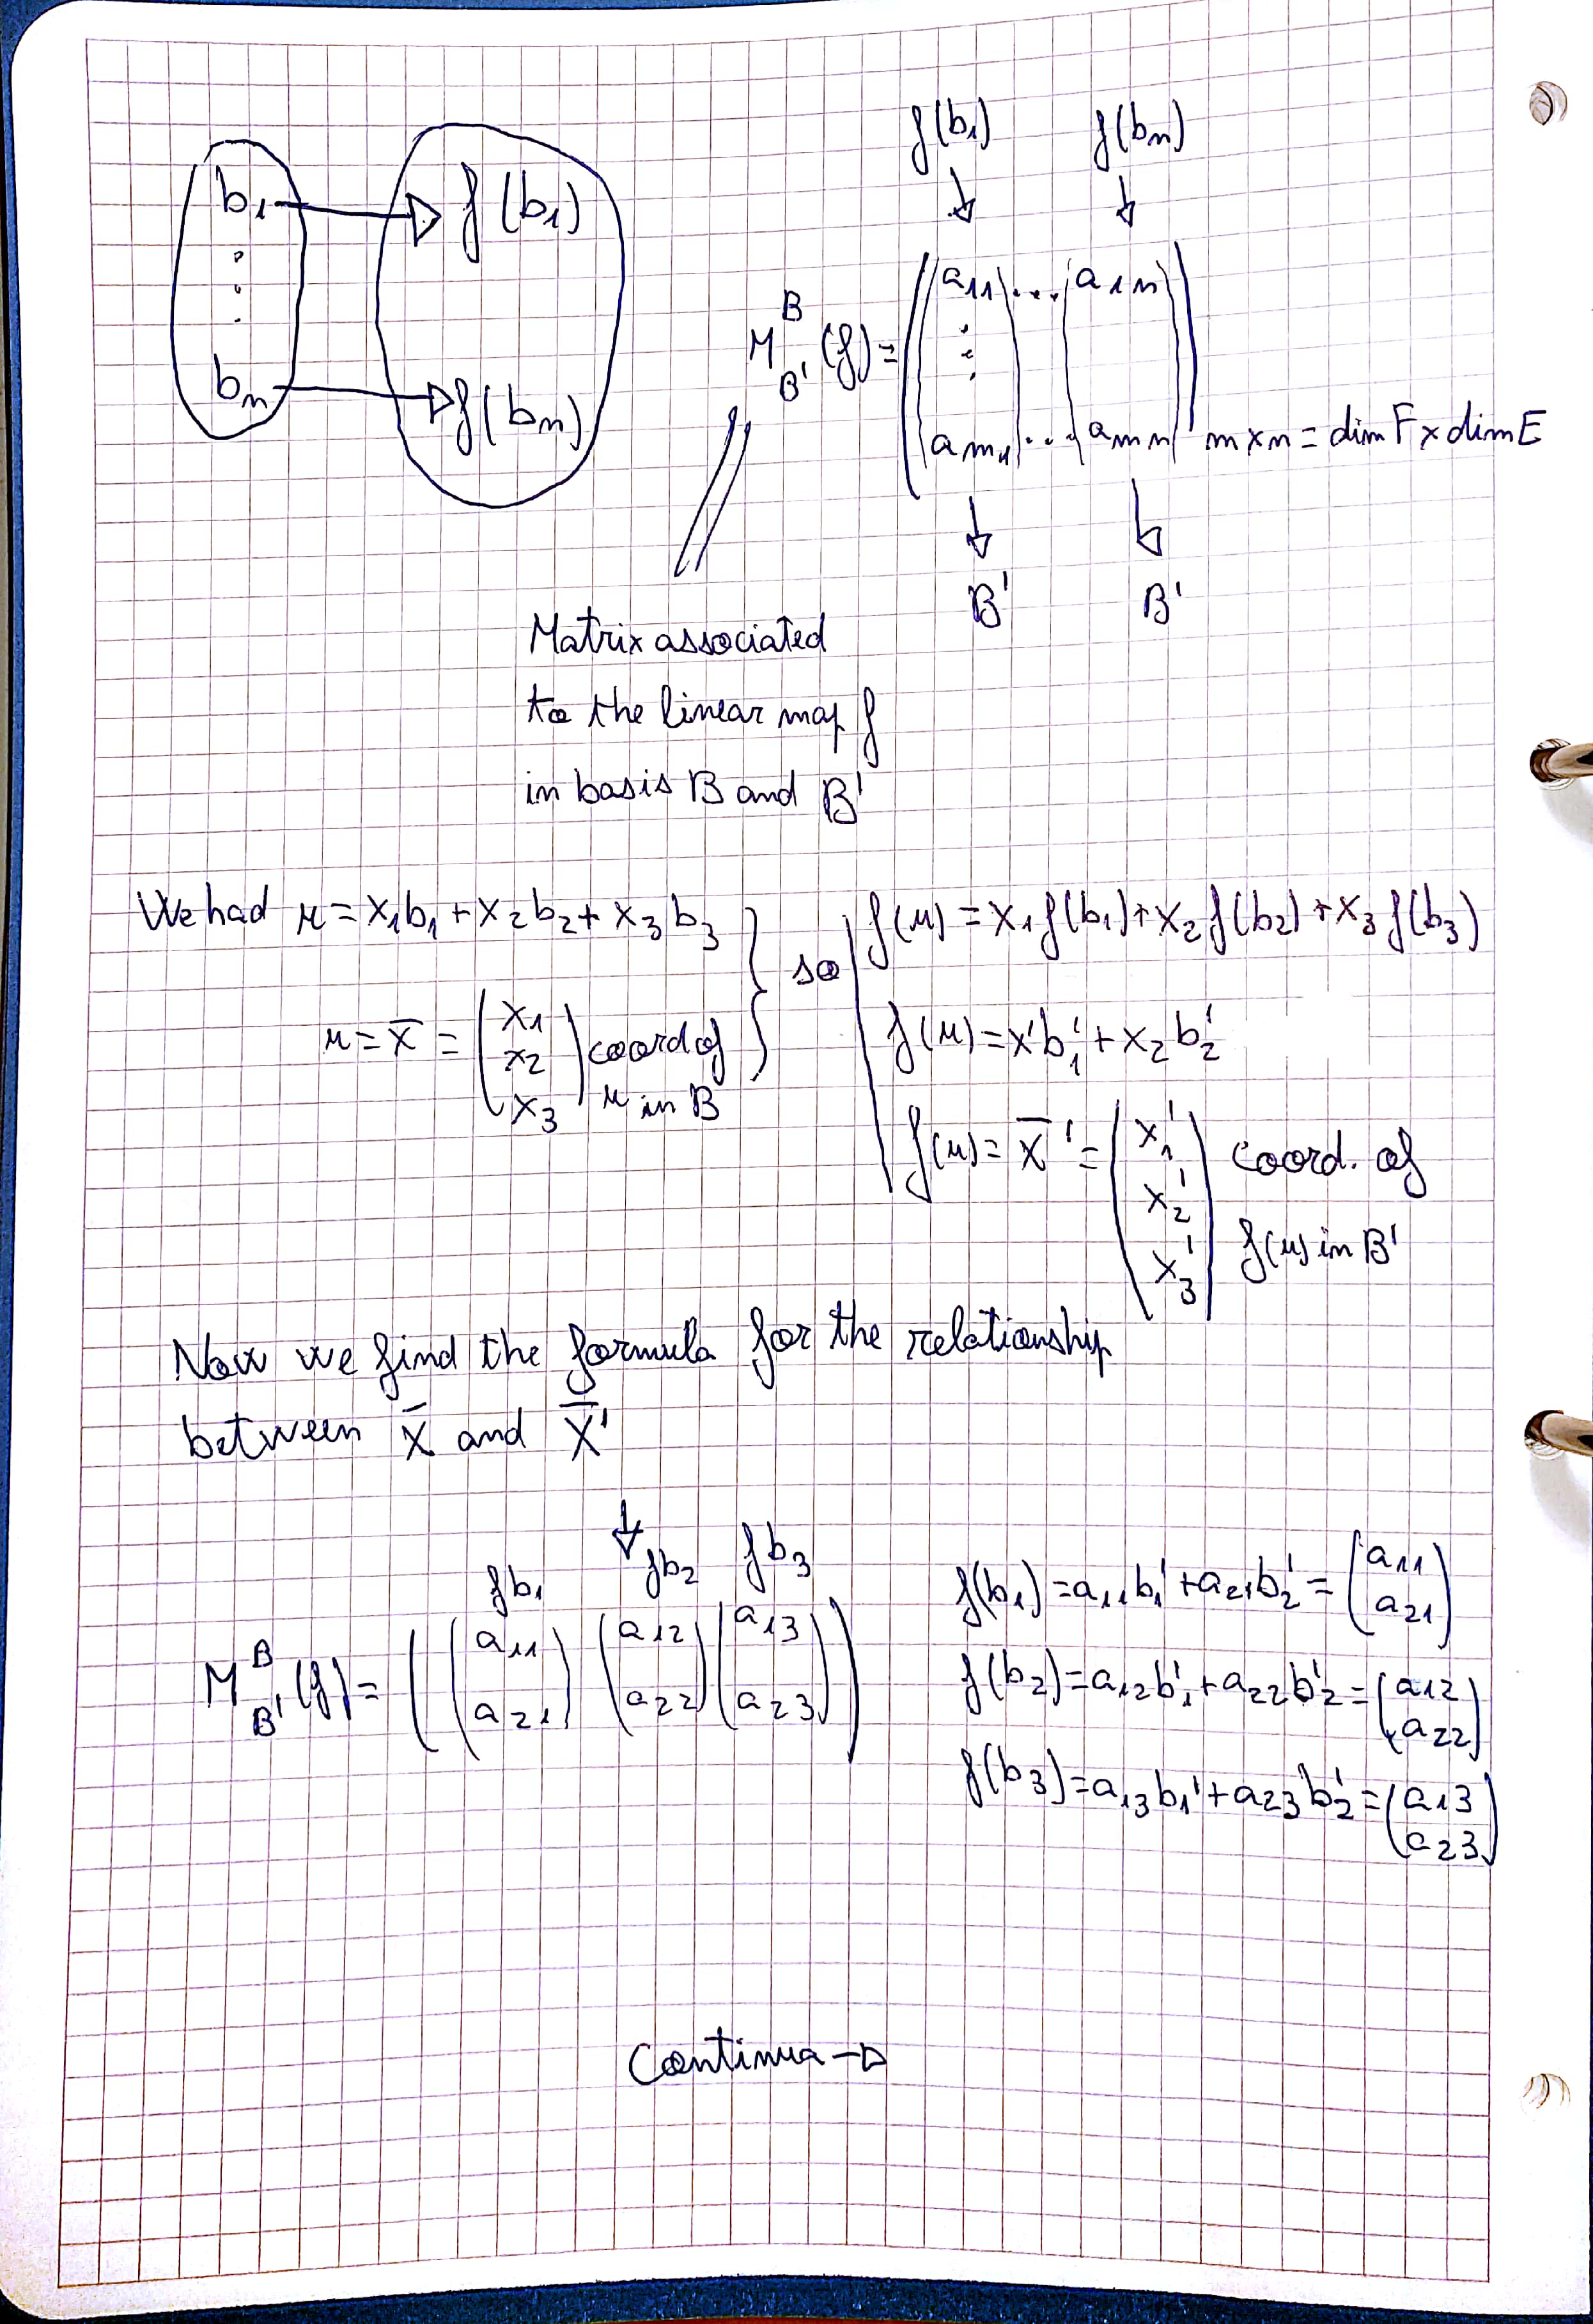 f(b₁) f(bₙ)
b₁ → f(b₁)
bₙ → f(bₙ)
M^B_B' (f) = ( a₁₁ ... a₁ₙ
aₘ₁ ... aₘₙ ) m×n = dim F × dim E
B' B'
Matrix associated
to the linear map f
in basis B and B'
We had u = x₁b₁ + x₂b₂ + x₃b₃ } so f(u) = x₁f(b₁) + x₂f(b₂) + x₃f(b₃)
f(u) = x'b₁' + x₂b₂'
u = x̄ = ( x₁ x₂ x₃ ) coord of u in B
f(u) = x̄' = ( x₁' x₂' x₃' ) coord. of
f(u) in B'
Now we find the formula for the relationship
between x̄ and x̄'
↓
fb₁ fb₂ fb₃
M^B_B' (f) = ( ( a₁₁ a₂₁ ) ( a₁₂ a₂₂ ) ( a₁₃ a₂₃ ) )
f(b₁) = a₁₁b₁' + a₂₁b₂' = ( a₁₁ a₂₁ )
f(b₂) = a₁₂b₁' + a₂₂b₂' = ( a₁₂ a₂₂ )
f(b₃) = a₁₃b₁' + a₂₃b₂' = ( a₁₃ a₂₃ )
Continua →